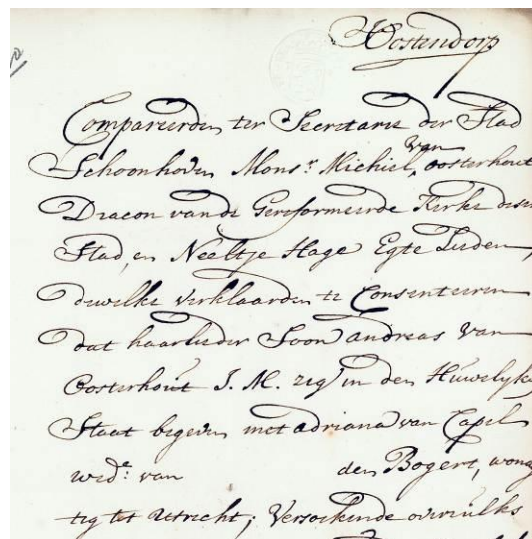 Oostendorp
Compareerden ter Secretarie der Stad
Schoonhoven Mons.r Michiel van Oosterhout
Diacon vande Gereformeerde Kerke deser
Stad, en Neeltje Hage Egte Lieden,
dewelke verklaarden te Consenteeren
dat haarlieder Soon andreas van
Oosterhout J. M. zig in den Huwelyke
Staat begeven met adriana van Capel
wed.e van den Bogert, wong
tig tot Utrecht; Versoekende overzulks